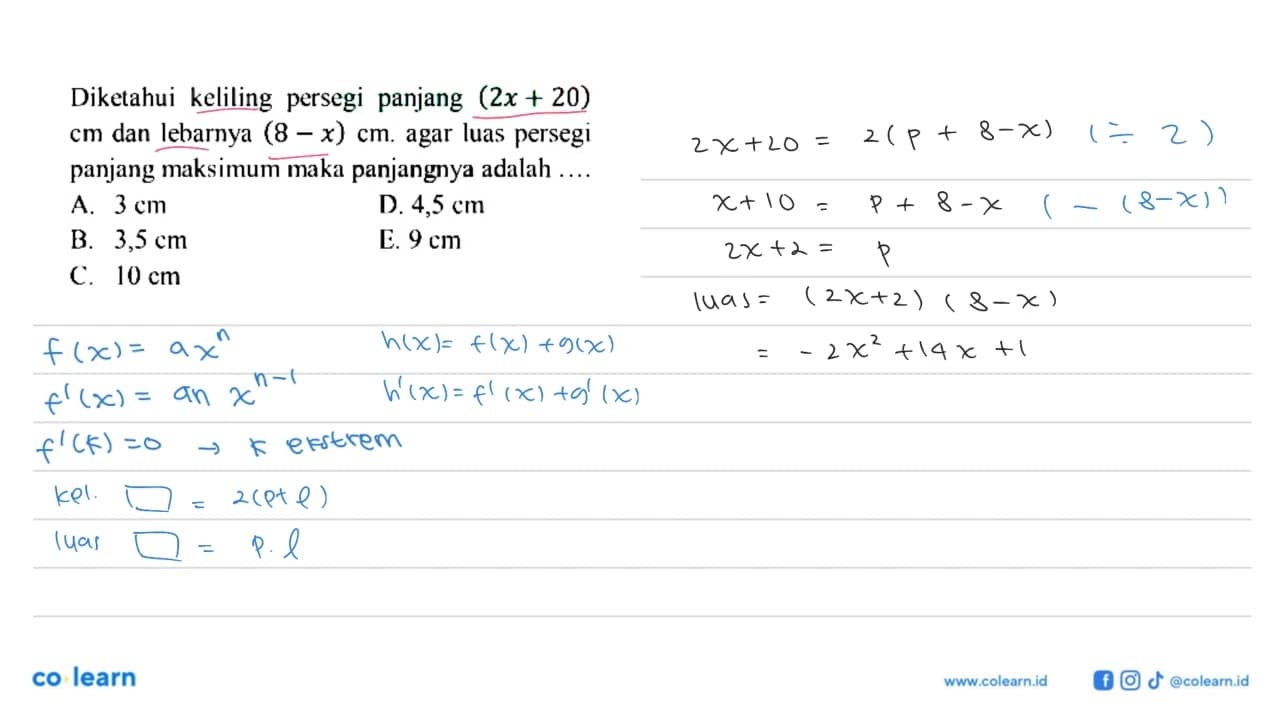 Diketahui keliling persegi panjang (2x + 20)
cm dan lebarnya (8 – x) cm. agar luas persegi
panjang maksimum maka panjangnya adalah ....
A. 3 cm D. 4,5 cm
B. 3,5 cm E. 9 cm
C. 10 cm
2x+20 = 2(p + 8-x) (÷ 2)
x+10 = p + 8-x ( - (8-x))
2x+2 = p
luas = (2x+2) (8-x)
= -2x² +14x +1
f(x)= ax^n h(x)= f(x) +g(x)
f'(x) = an x^{n-1} h'(x)= f'(x) +g'(x)
f'(k) =0 → k ekstrem
kel. □ = 2(p+l)
luas □ = p.l
co learn
www.colearn.id @colearn.id